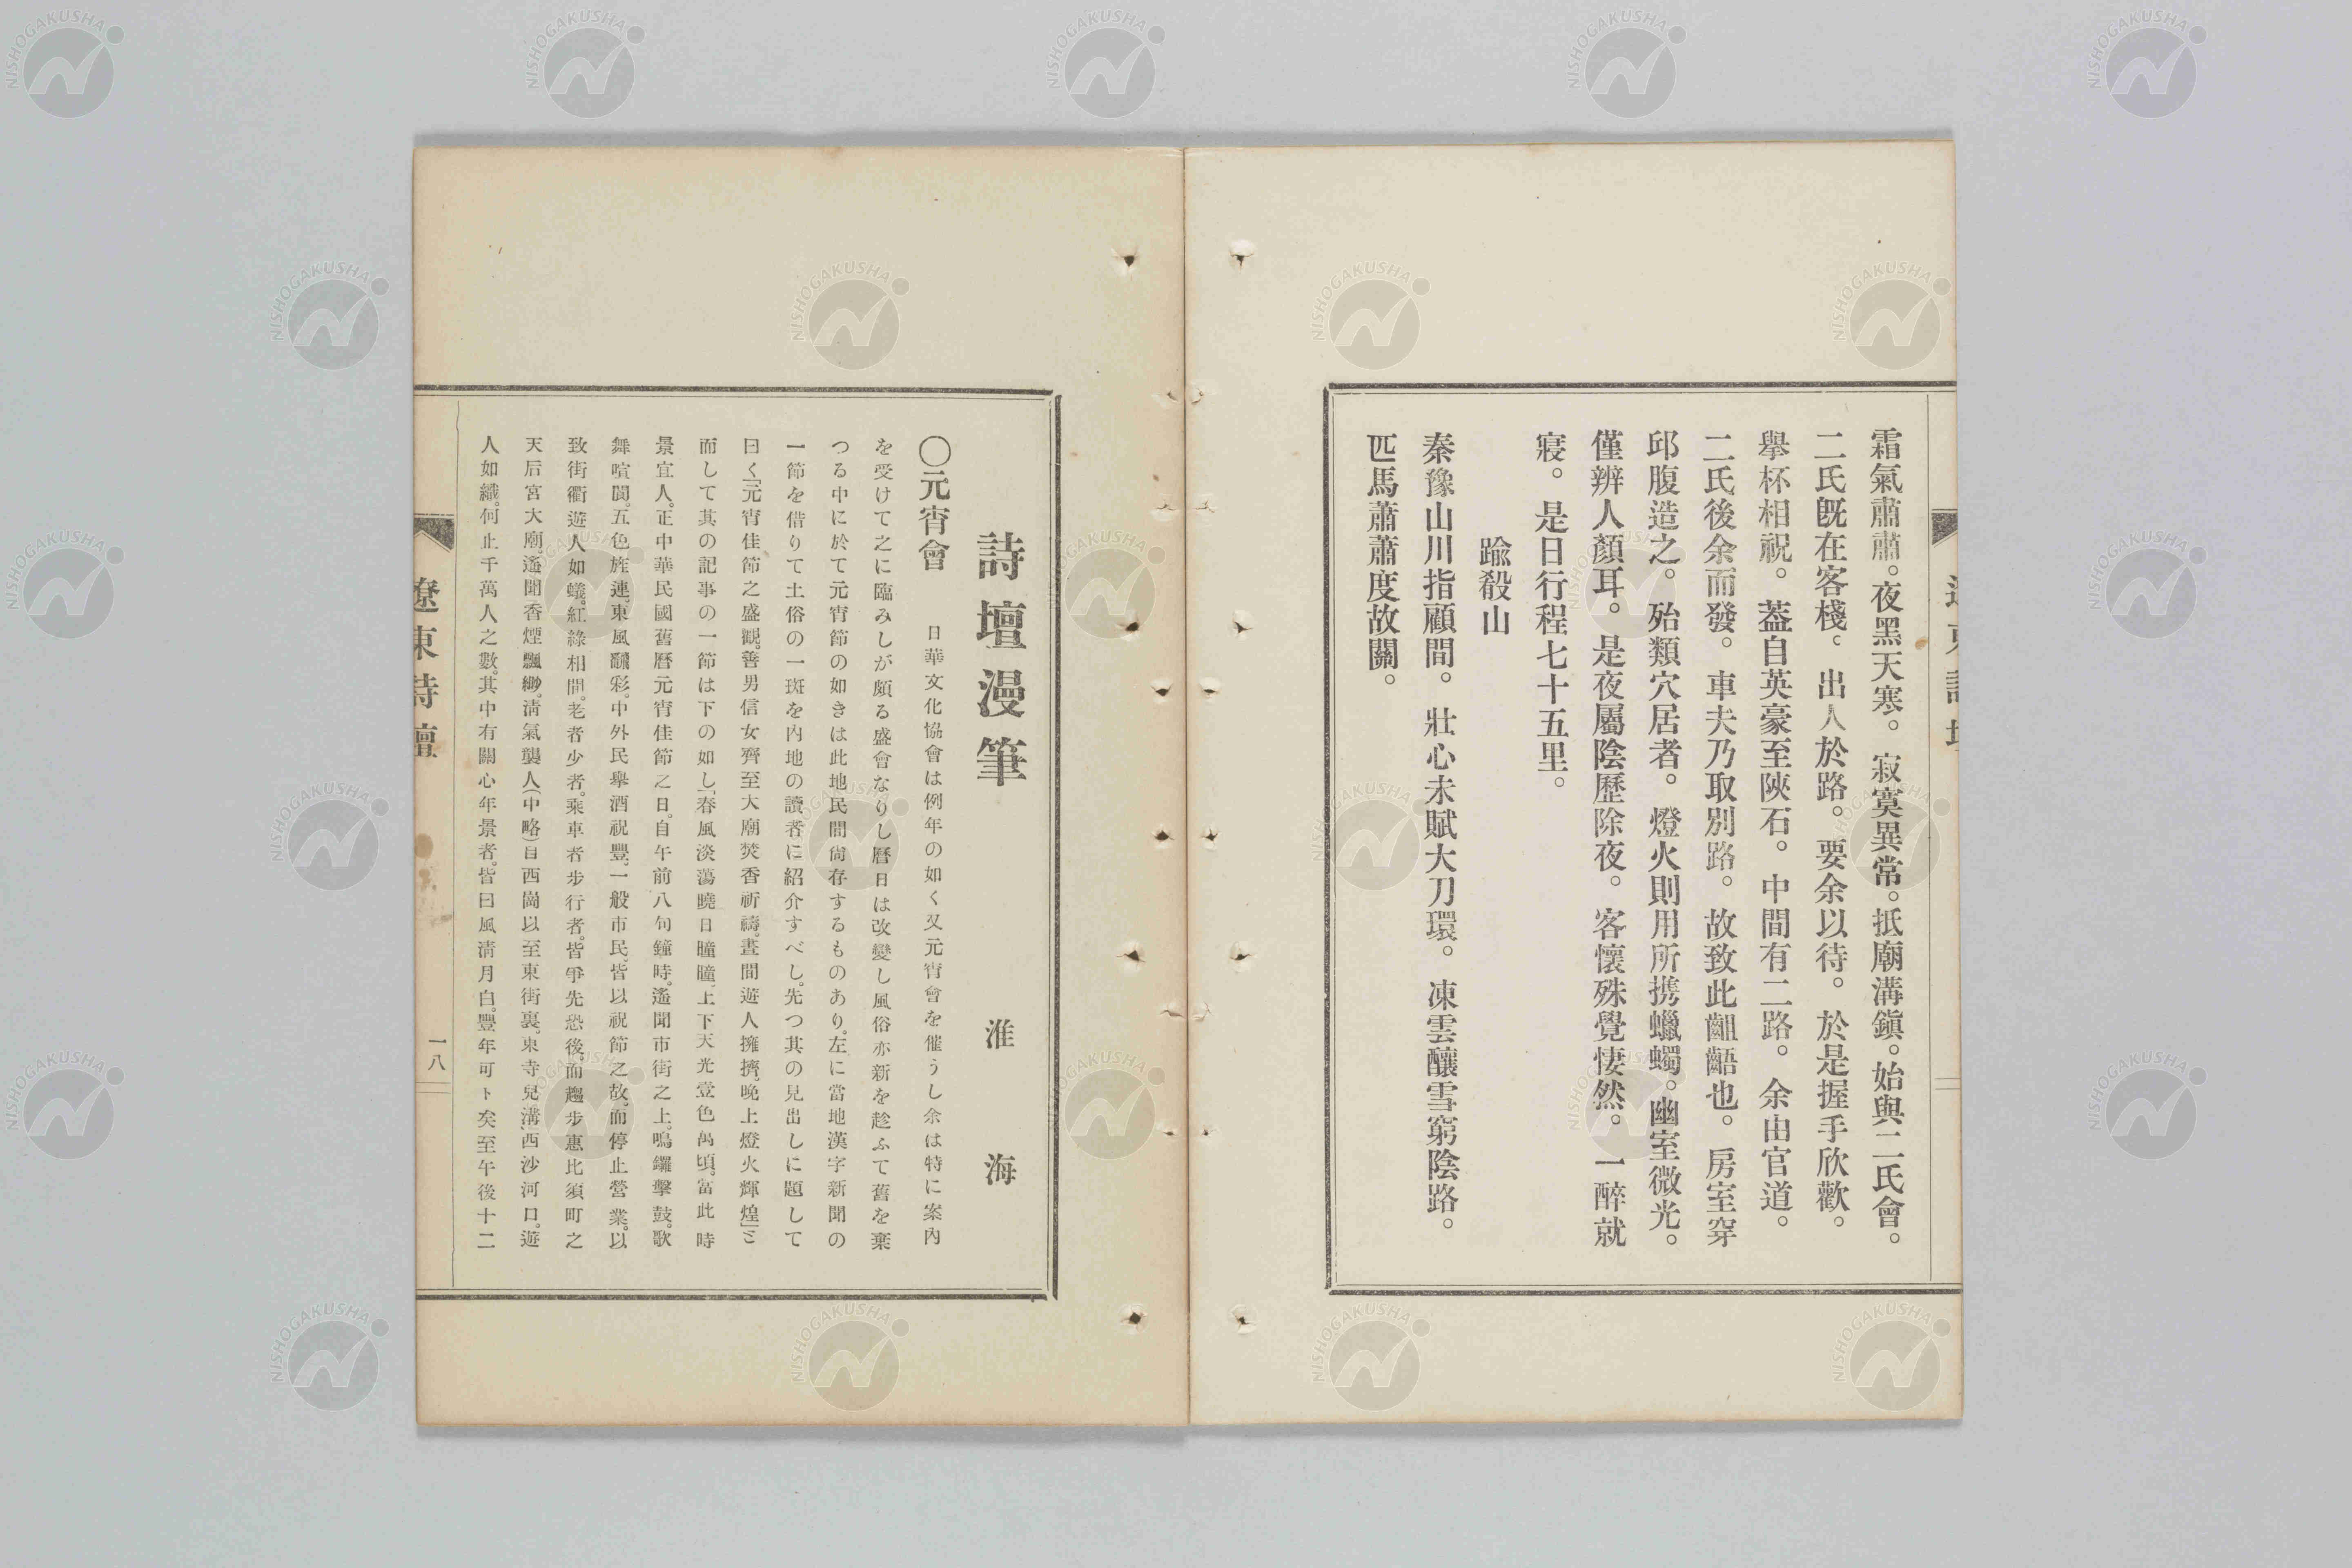 霜氣肅肅。夜黑天寒。寂寞異常。抵廟溝鎭。始與二氏會。
二氏既在客棧。出人於路。要余以待。於是握手欣歡。
擧杯相祝。蓋自英豪至陝石。中間有二路。余由官道。
二氏後余而發。車夫乃取別路。故致此齟齬也。房室穿
邱腹造之。殆類穴居者。燈火則用所携蠟蠋。幽室微光。
僅辨人顏耳。是夜屬陰歷除夜。客懷殊覺悽然。一醉就
寢。是日行程七十五里。
踰殽山
秦豫山川指顧間。壯心未賦大刀環。凍雲釀雪窮陰路。
匹馬蕭蕭度故關。
詩壇漫筆　淮海
〇元宵會　日華文化協會は例年の如く又元宵會を催うし余は特に案內
を受けて之に臨みしが頗る盛會なりし曆日は改變し風俗亦新を趁ふて舊を棄
つる中に於て元宵節の如きは此地民間尙存するものあり。左に當地漢字新聞の
一節を借りて土俗の一斑を內地の讀者に紹介すべし。先つ其の見出しに題して
曰く「元宵佳節之盛觀。善男信女齊至大廟焚香祈禱。晝間遊人擁擠。晚上燈火輝煌」と
而して其の記事の一節は下の如し「春風淡蕩曉日曈曈。上下天光壹色萬頃。當此時
景宜人。正中華民國舊曆元宵佳節之日。自午前八句鐘時。遙聞市街之上。鳴鑼擊鼓。歌
舞喧闐。五色旌連。東風飜彩。中外民擧酒祝豐。一般市民。皆以祝節之故。而停止營業。以
致街衢遊人如蟻。紅綠相間。老者少者。乘車者步行者。皆爭先恐後。而趨步惠比須町之
天后宮大廟。遙聞香煙飄緲。清氣襲人(中略)自西崗以至東街裏。東寺兒溝。西沙河口。遊
人如織。何止千萬人之數。其中有關心年景者。皆曰風淸月白。豐年可卜矣至午後十二
遼東詩壇
一八